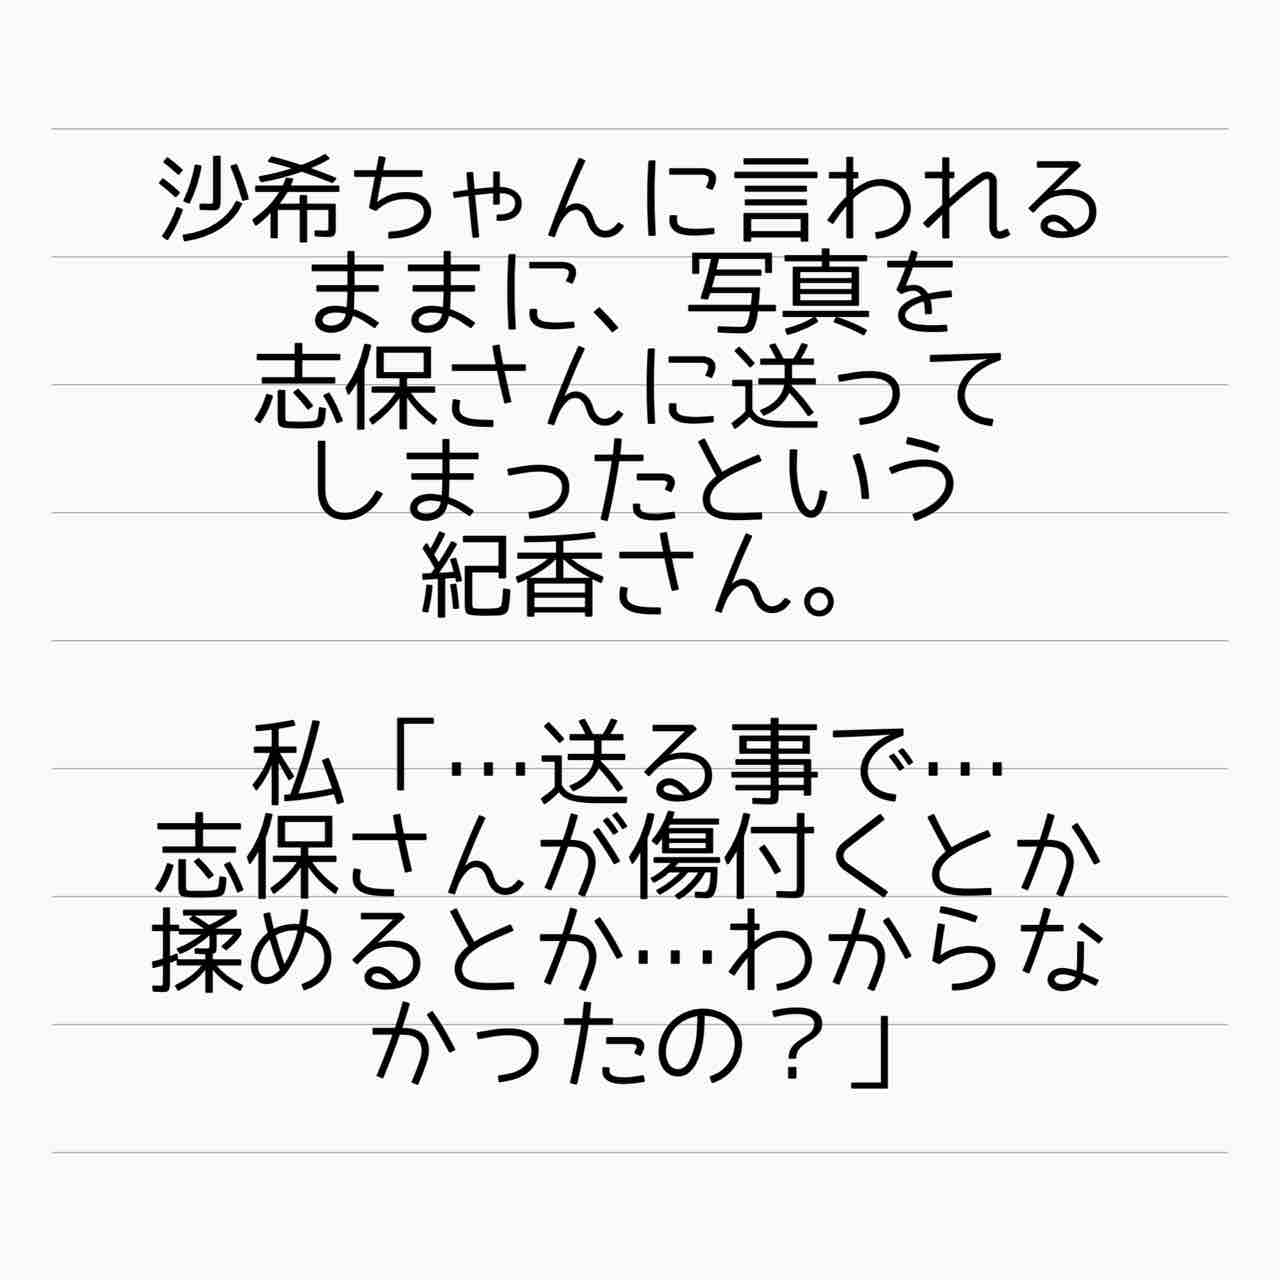 沙希ちゃんに言われる
ままに、写真を
志保さんに送って
しまったという
紀香さん。
私「…送る事で…
志保さんが傷付くとか
揉めるとか…わからな
かったの？」